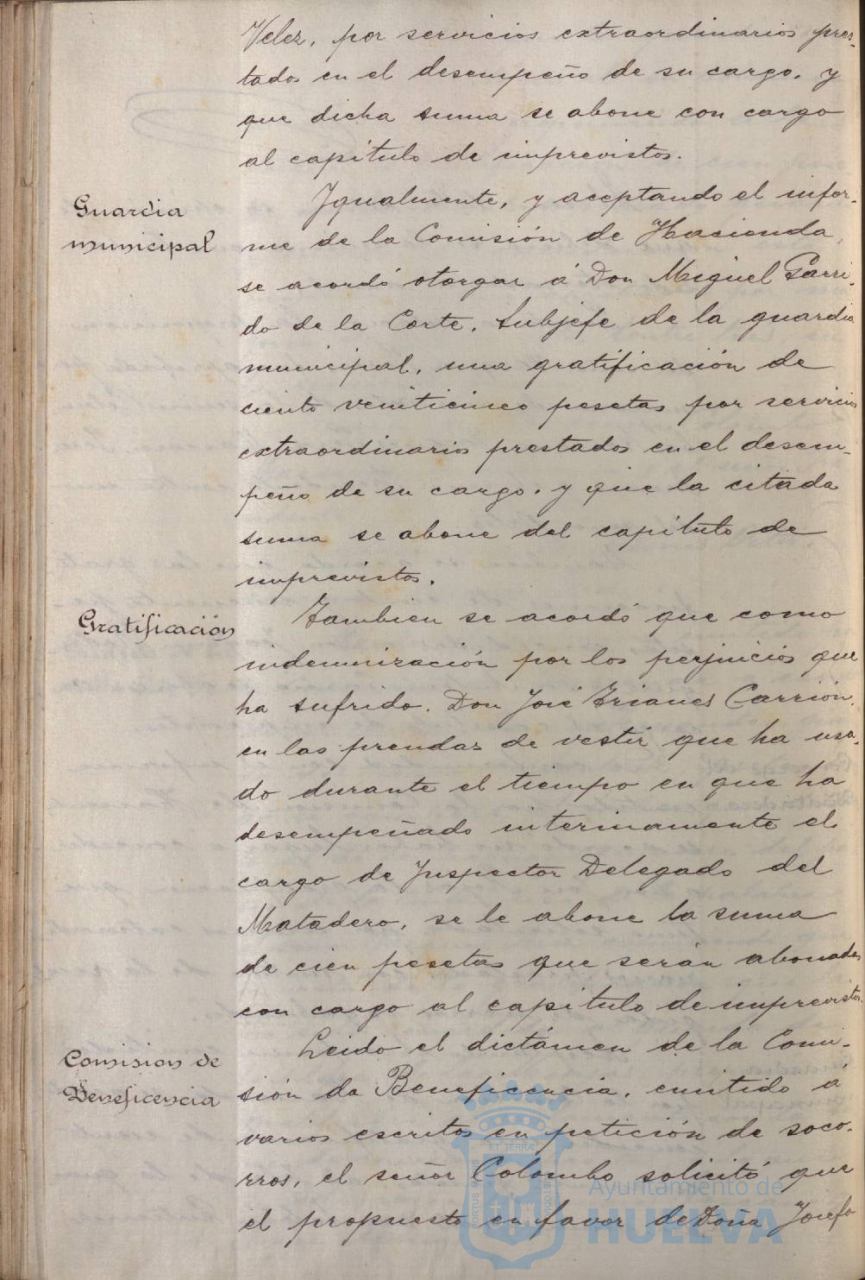 Velez, por servicios extraordinarios pres-
tados en el desempeño de su cargo, y
que dicha suma se abone con cargo
al capítulo de imprevistos.
Guardia
municipal
Igualmente, y aceptando el infor-
me de la Comisión de Hacienda,
se acordó otorgar á Don Miguel Garri-
do de la Corte, Subjefe de la guardia
municipal, una gratificación de
ciento veinticinco pesetas por servicios
extraordinarios prestados en el desem-
peño de su cargo, y que la citada
suma se abone del capítulo de
imprevistos.
Gratificación
Tambien se acordó que como
indemnización por los perjuicios que
ha sufrido, Don José Trianes Carrión,
en las prendas de vestir que ha usa-
do durante el tiempo en que ha
desempeñado interinamente el
cargo de Inspector Delegado del
Matadero, se le abone la suma
de cien pesetas que serán abonadas
con cargo al capítulo de imprevistos.
Comision de
Beneficencia
Leido el dictámen de la Comi-
sión da Beneficencia, emitido á
varios escritos en petición de soco-
rros, el señor Colombo solicitó que
el propuesto en favor de Doña Josefa
Ayuntamiento de
HUELVA